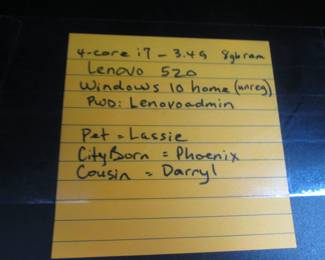 4-core i7 - 3.4G 8gb ram
Lenovo 520
Windows 10 home (unreg)
PWD: Lenovoadmin
Pet = Lassie
CityBorn = Phoenix
Cousin = Darryl